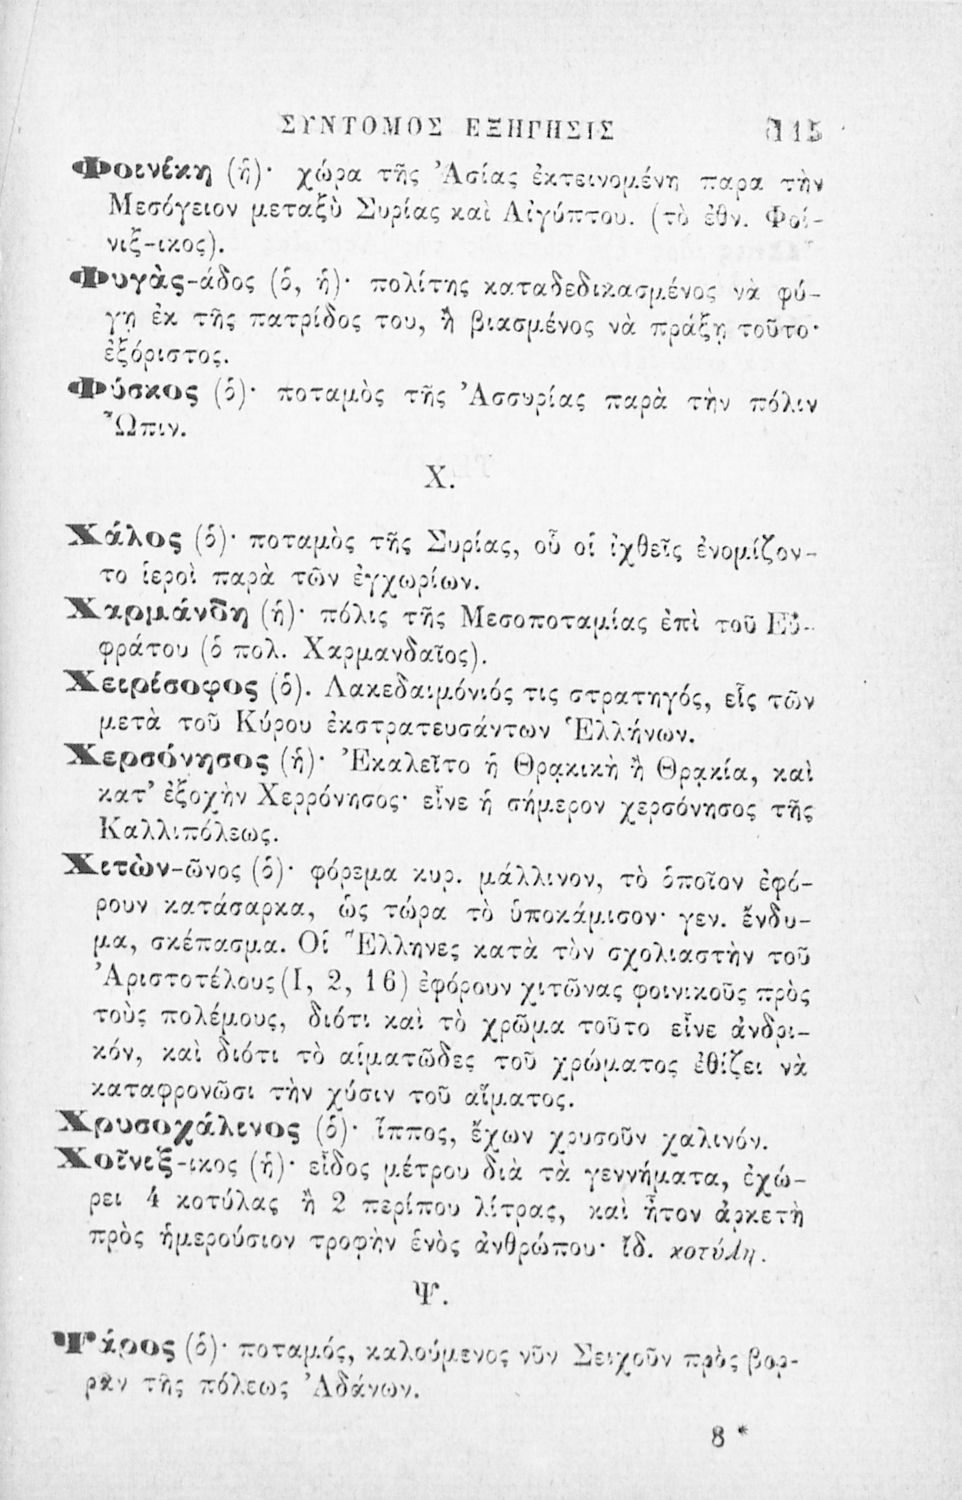 ΣΥΝΤΟΜΟΣ ΕΞΗΓΗΣΙΣ 115
Φοινίκη (ἡ)· χώρα τῆς Ἀσίας ἐκτεινομένη παρα τὴν
Μεσόγειον μεταξὺ Συρίας καὶ Αἰγύπτου. (τὸ ἐθν. Φοί-
νιξ-ικος).
Φυγὰς-άδος (ὁ, ἡ)· πολίτης καταδεδικασμένος νὰ φύ-
γῃ ἐκ τῆς πατρίδος του, ἢ βιασμένος νὰ πράξῃ τοῦτο·
ἐξόριστος.
Φύσκος (ὁ)· ποταμὸς τῆς Ἀσσυρίας παρὰ τὴν πόλιν
Ὦπιν.
Χ.
Χάλος (ὁ)· ποταμὸς τῆς Συρίας, οὗ οἱ ἰχθεῖς ἐνομίζον-
το ἱεροὶ παρὰ τῶν ἐγχωρίων.
Χαρμάνδη (ἡ)· πόλις τῆς Μεσοποταμίας ἐπὶ τοῦ Εὐ-
φράτου (ὁ πολ. Χαρμανδαῖος).
Χειρίσοφος (ὁ). Λακεδαιμόνιός τις στρατηγός, εἷς τῶν
μετὰ τοῦ Κύρου ἐκστρατευσάντων Ἑλλήνων.
Χερσόνησος (ἡ)· Ἐκαλεῖτο ἡ Θρᾳκικὴ ἢ Θρᾳκία, καὶ
κατ' ἐξοχὴν Χερρόνησος· εἶνε ἡ σήμερον χερσόνησος τῆς
Καλλιπόλεως.
Χιτὼν-ῶνος (ὁ)· φόρεμα κυρ. μάλλινον, τὸ ὁποῖον ἐφό-
ρουν κατάσαρκα, ὡς τώρα τὸ ὑποκάμισον· γεν. ἔνδυ-
μα, σκέπασμα. Οἱ Ἕλληνες κατὰ τὸν σχολιαστὴν τοῦ
Ἀριστοτέλους (Ι, 2, 16) ἐφόρουν χιτῶνας φοινικοῦς πρὸς
τοὺς πολέμους, διότι καὶ τὸ χρῶμα τοῦτο εἶνε ἀνδρι-
κόν, καὶ διότι τὸ αἱματῶδες τοῦ χρώματος ἐθίζει νὰ
καταφρονῶσι τὴν χύσιν τοῦ αἵματος.
Χρυσοχάλινος (ὁ)· ἵππος, ἔχων χρυσοῦν χαλινόν.
Χοῖνιξ-ικος (ἡ)· εἶδος μέτρου διὰ τὰ γεννήματα, ἐχώ-
ρει 4 κοτύλας ἢ 2 περίπου λίτρας, καὶ ἦτον ἀρκετὴ
πρὸς ἡμερούσιον τροφὴν ἑνὸς ἀνθρώπου· ἴδ. κοτύλη.
Ψ.
Ψάρος (ὁ)· ποταμός, καλούμενος νῦν Σειχοῦν πρὸς βορ-
ρᾶν τῆς πόλεως Ἀδάνων.
8 *